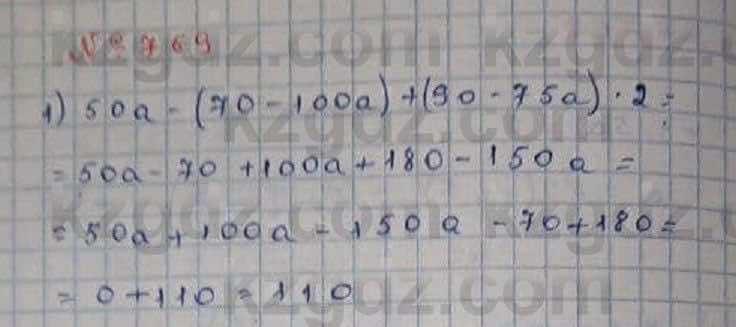 № 769
1) 50a - (70 - 100a) + (90 - 75a) · 2 =
= 50a - 70 + 100a + 180 - 150a =
= 50a + 100a - 150a - 70 + 180 =
= 0 + 110 = 110
kzgdz.com